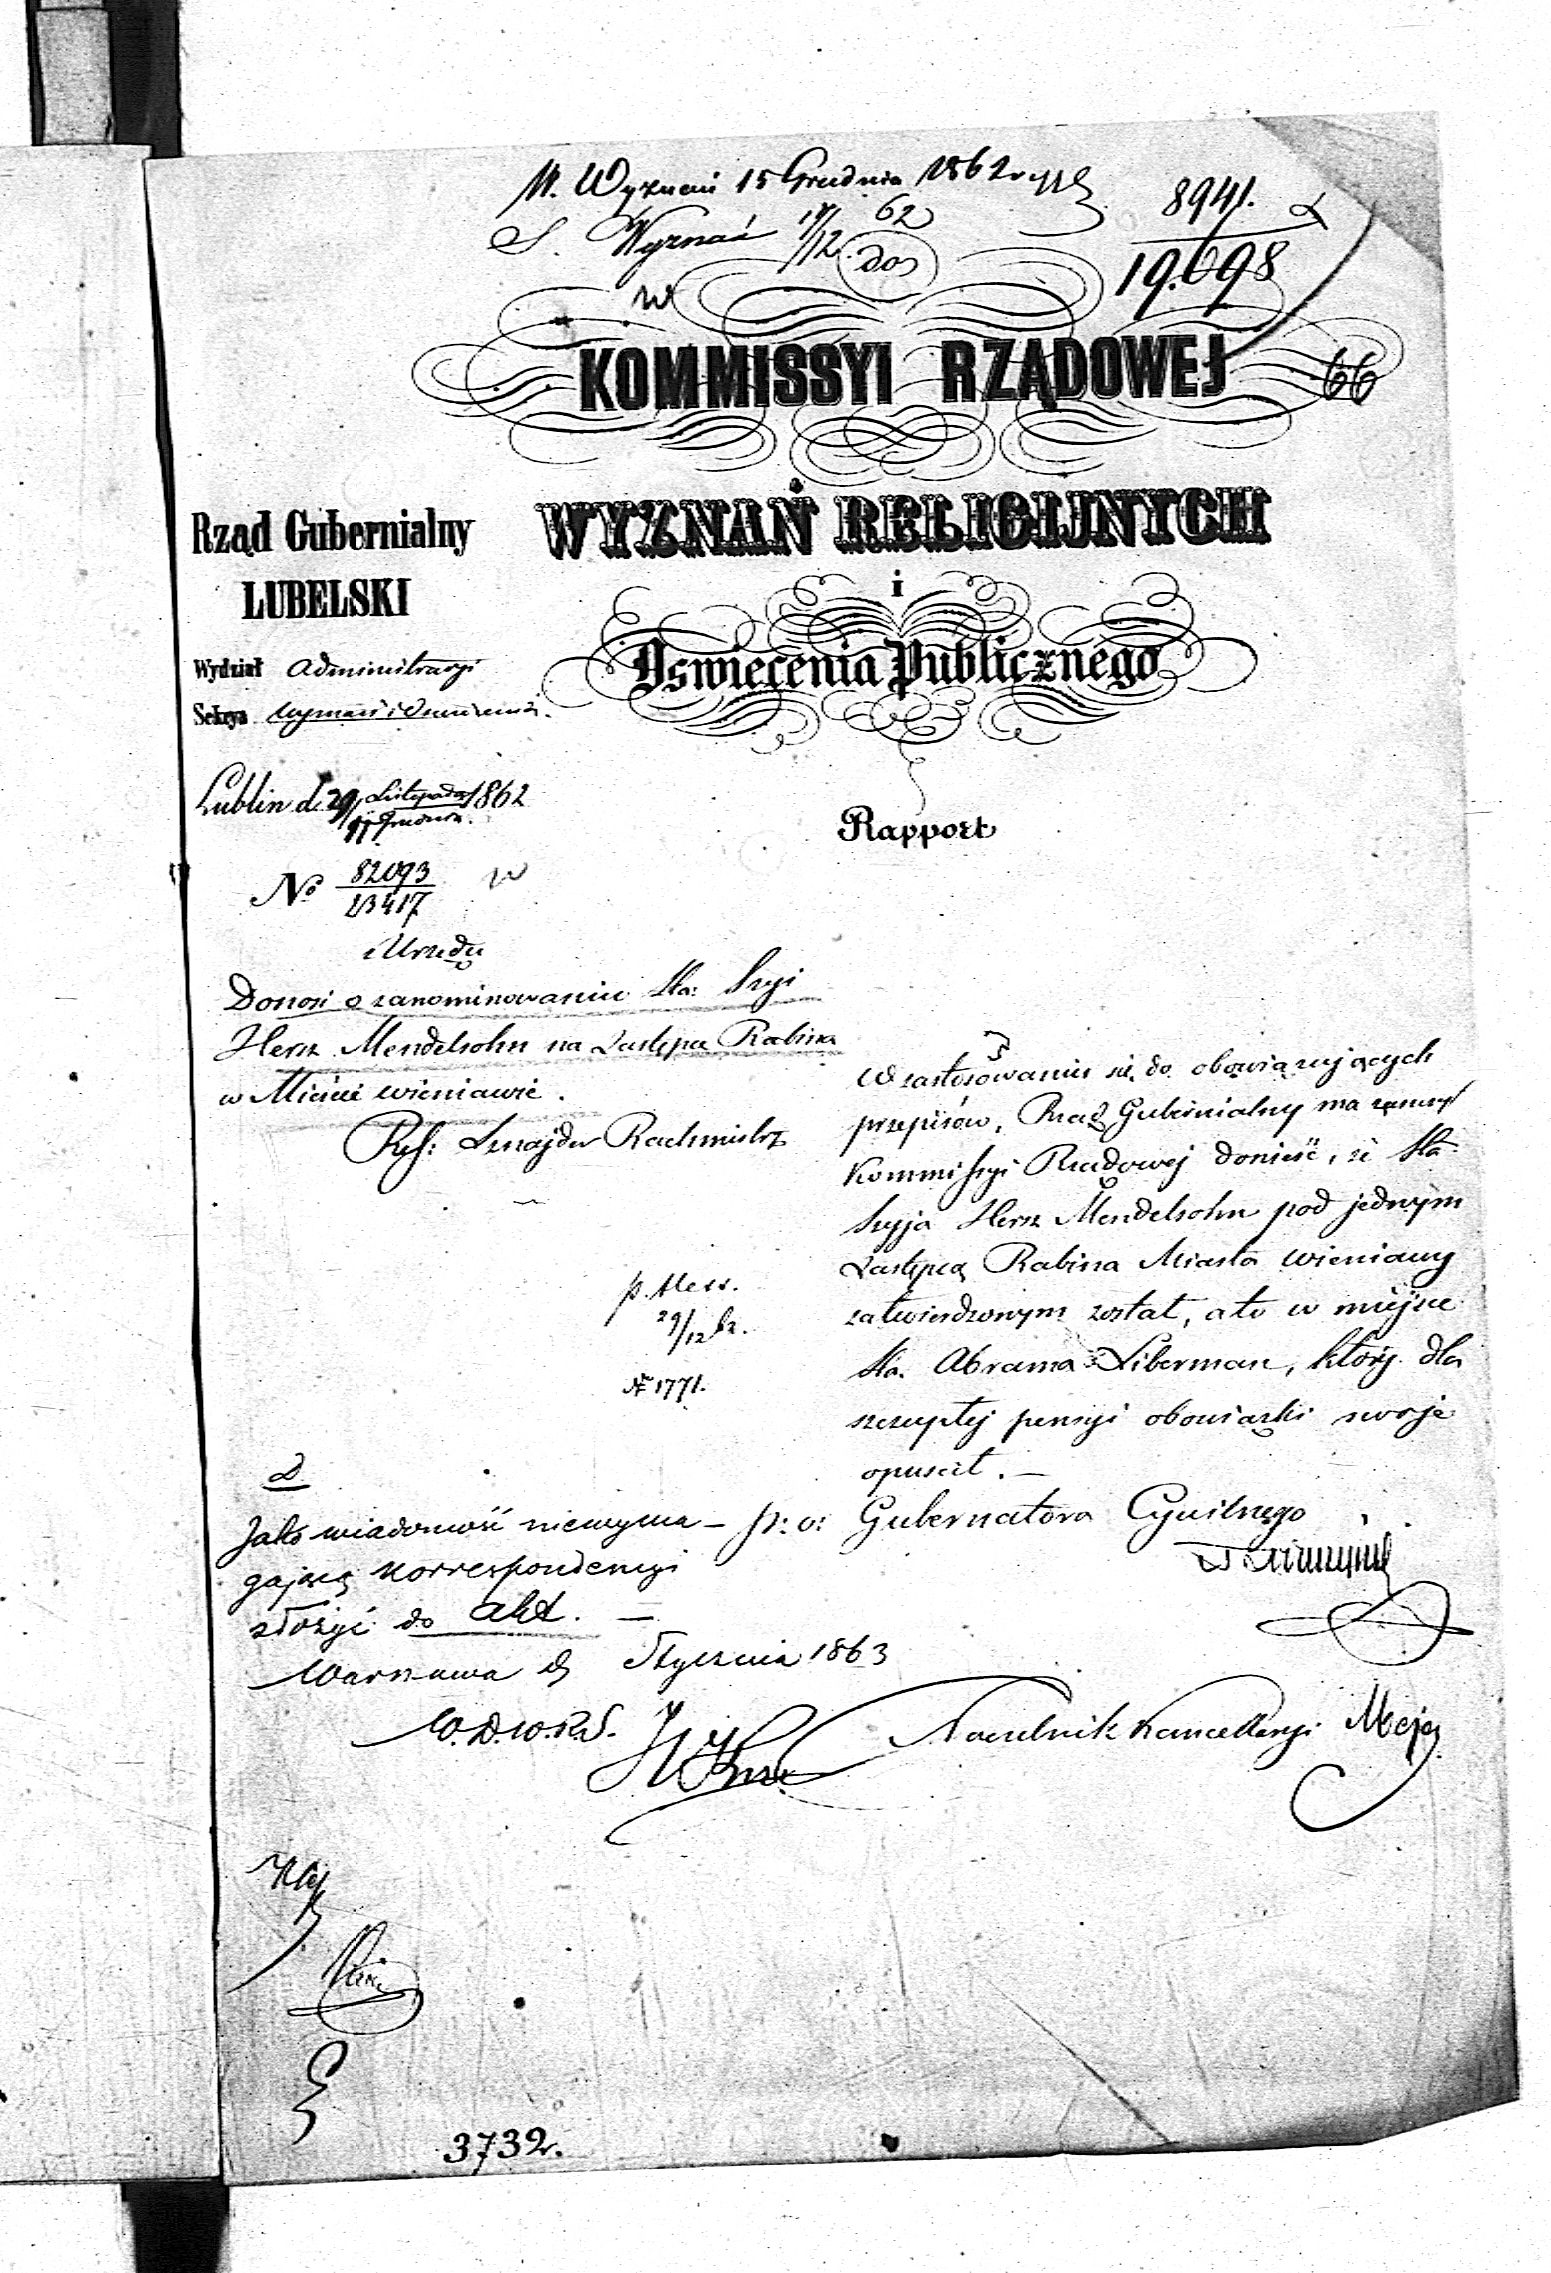 W. Wyznań 15 Grudnia 1862 r
S. Wyznań 17/12 62
do
w
8941.
19.698
KOMMISSYI RZĄDOWEJ
66
WYZNAŃ RELIGIJNYCH
i
Oswiecenia Publicznego
Rapport
Rząd Gubernialny
LUBELSKI
Wydział Administracyi
Sekcya Wyznań i Oswiecenia.
Lublin d. 29 Listopada 1862
11 Grudnia.
No 82093
23417
z Urzędu
Donosi o zanominowaniu Sta: Szyi
Hersz Mendelsohn na Zastępcę Rabina
w Mieście Wieniawie.
Ref: Sznajder Rachmistrz
W zastosowaniu się do obowiązujących
przepisów, Rząd Gubernialny ma zaszczyt
Kommissyi Rządowej donieść, że Sta:
Szyja Hersz Mendelsohn pod jednym
Zastępcą Rabina Miasta Wieniawy
zatwierdzonym został, a to w miejsce
Sta. Abrama Liberman, który dla
szczupłej pensyi obowiązki swoje
opuścił. —
p: o: Gubernatora Cywilnego
Naczelnik Kancellaryi
29/12
No 1771.
Jako wiadomość niewyma-
gającą korrespondencyi
złożyć do akt. —
Warszawa d Stycznia 1863
W.D.W.R.S.
3732.